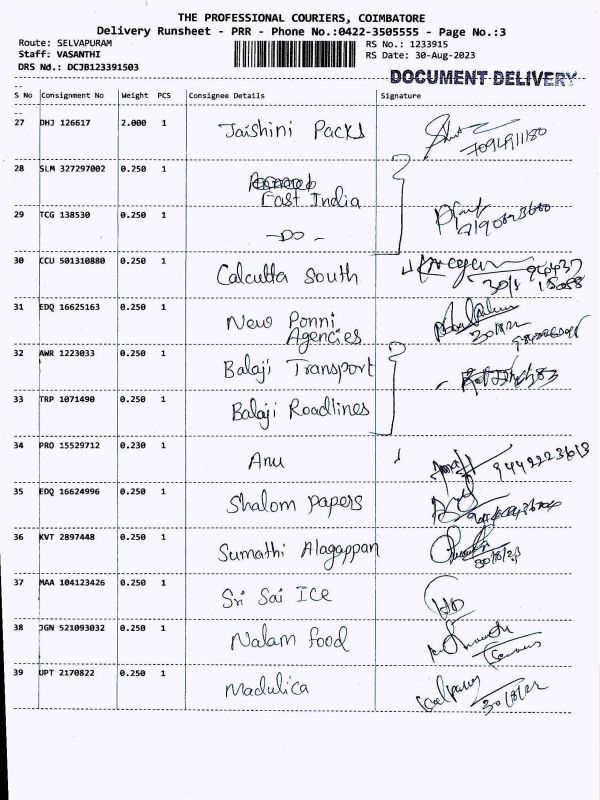 THE PROFESSIONAL COURIERS, COIMBATORE
Delivery Runsheet - PRR - Phone No.:0422-3505555 - Page No.:3
Route: SELVAPURAM RS No.: 1233915
Staff: VASANTHI RS Date: 30-Aug-2023
DRS No.: DCJB123391503
DOCUMENT DELIVERY
S No Consignment No Weight PCS Consignee Details Signature
27 DHJ 126617 2.000 1 Jaishini Packs
7094911180
28 SLM 327297002 0.250 1 East India
29 TCG 138530 0.250 1 -DO-
30 CCU 501310880 0.250 1 Calcutta South
31 EDQ 16625163 0.250 1 New Ponni
Agencies
32 AWR 1223033 0.250 1 Balaji Transport
33 TRP 1071490 0.250 1 Balaji Roadlines
34 PRO 15529712 0.230 1 Anu
35 EDQ 16624996 0.250 1 Shalom papers
36 KVT 2897448 0.250 1 Sumathi Alagappan
30/8/23
37 MAA 104123426 0.250 1 Sri Sai ICE
38 JGN 521093032 0.250 1 Nalam food
39 UPT 2170822 0.250 1 Madulica